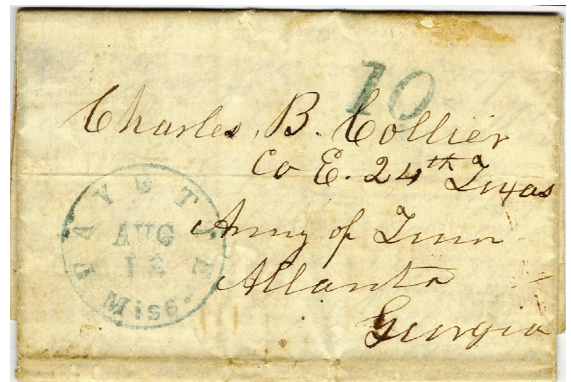 10
Charles. B. Collier
Co E. 24th Texas
Army of Tenn
Atlanta
Georgia
FAYETTE
AUG
Miss.